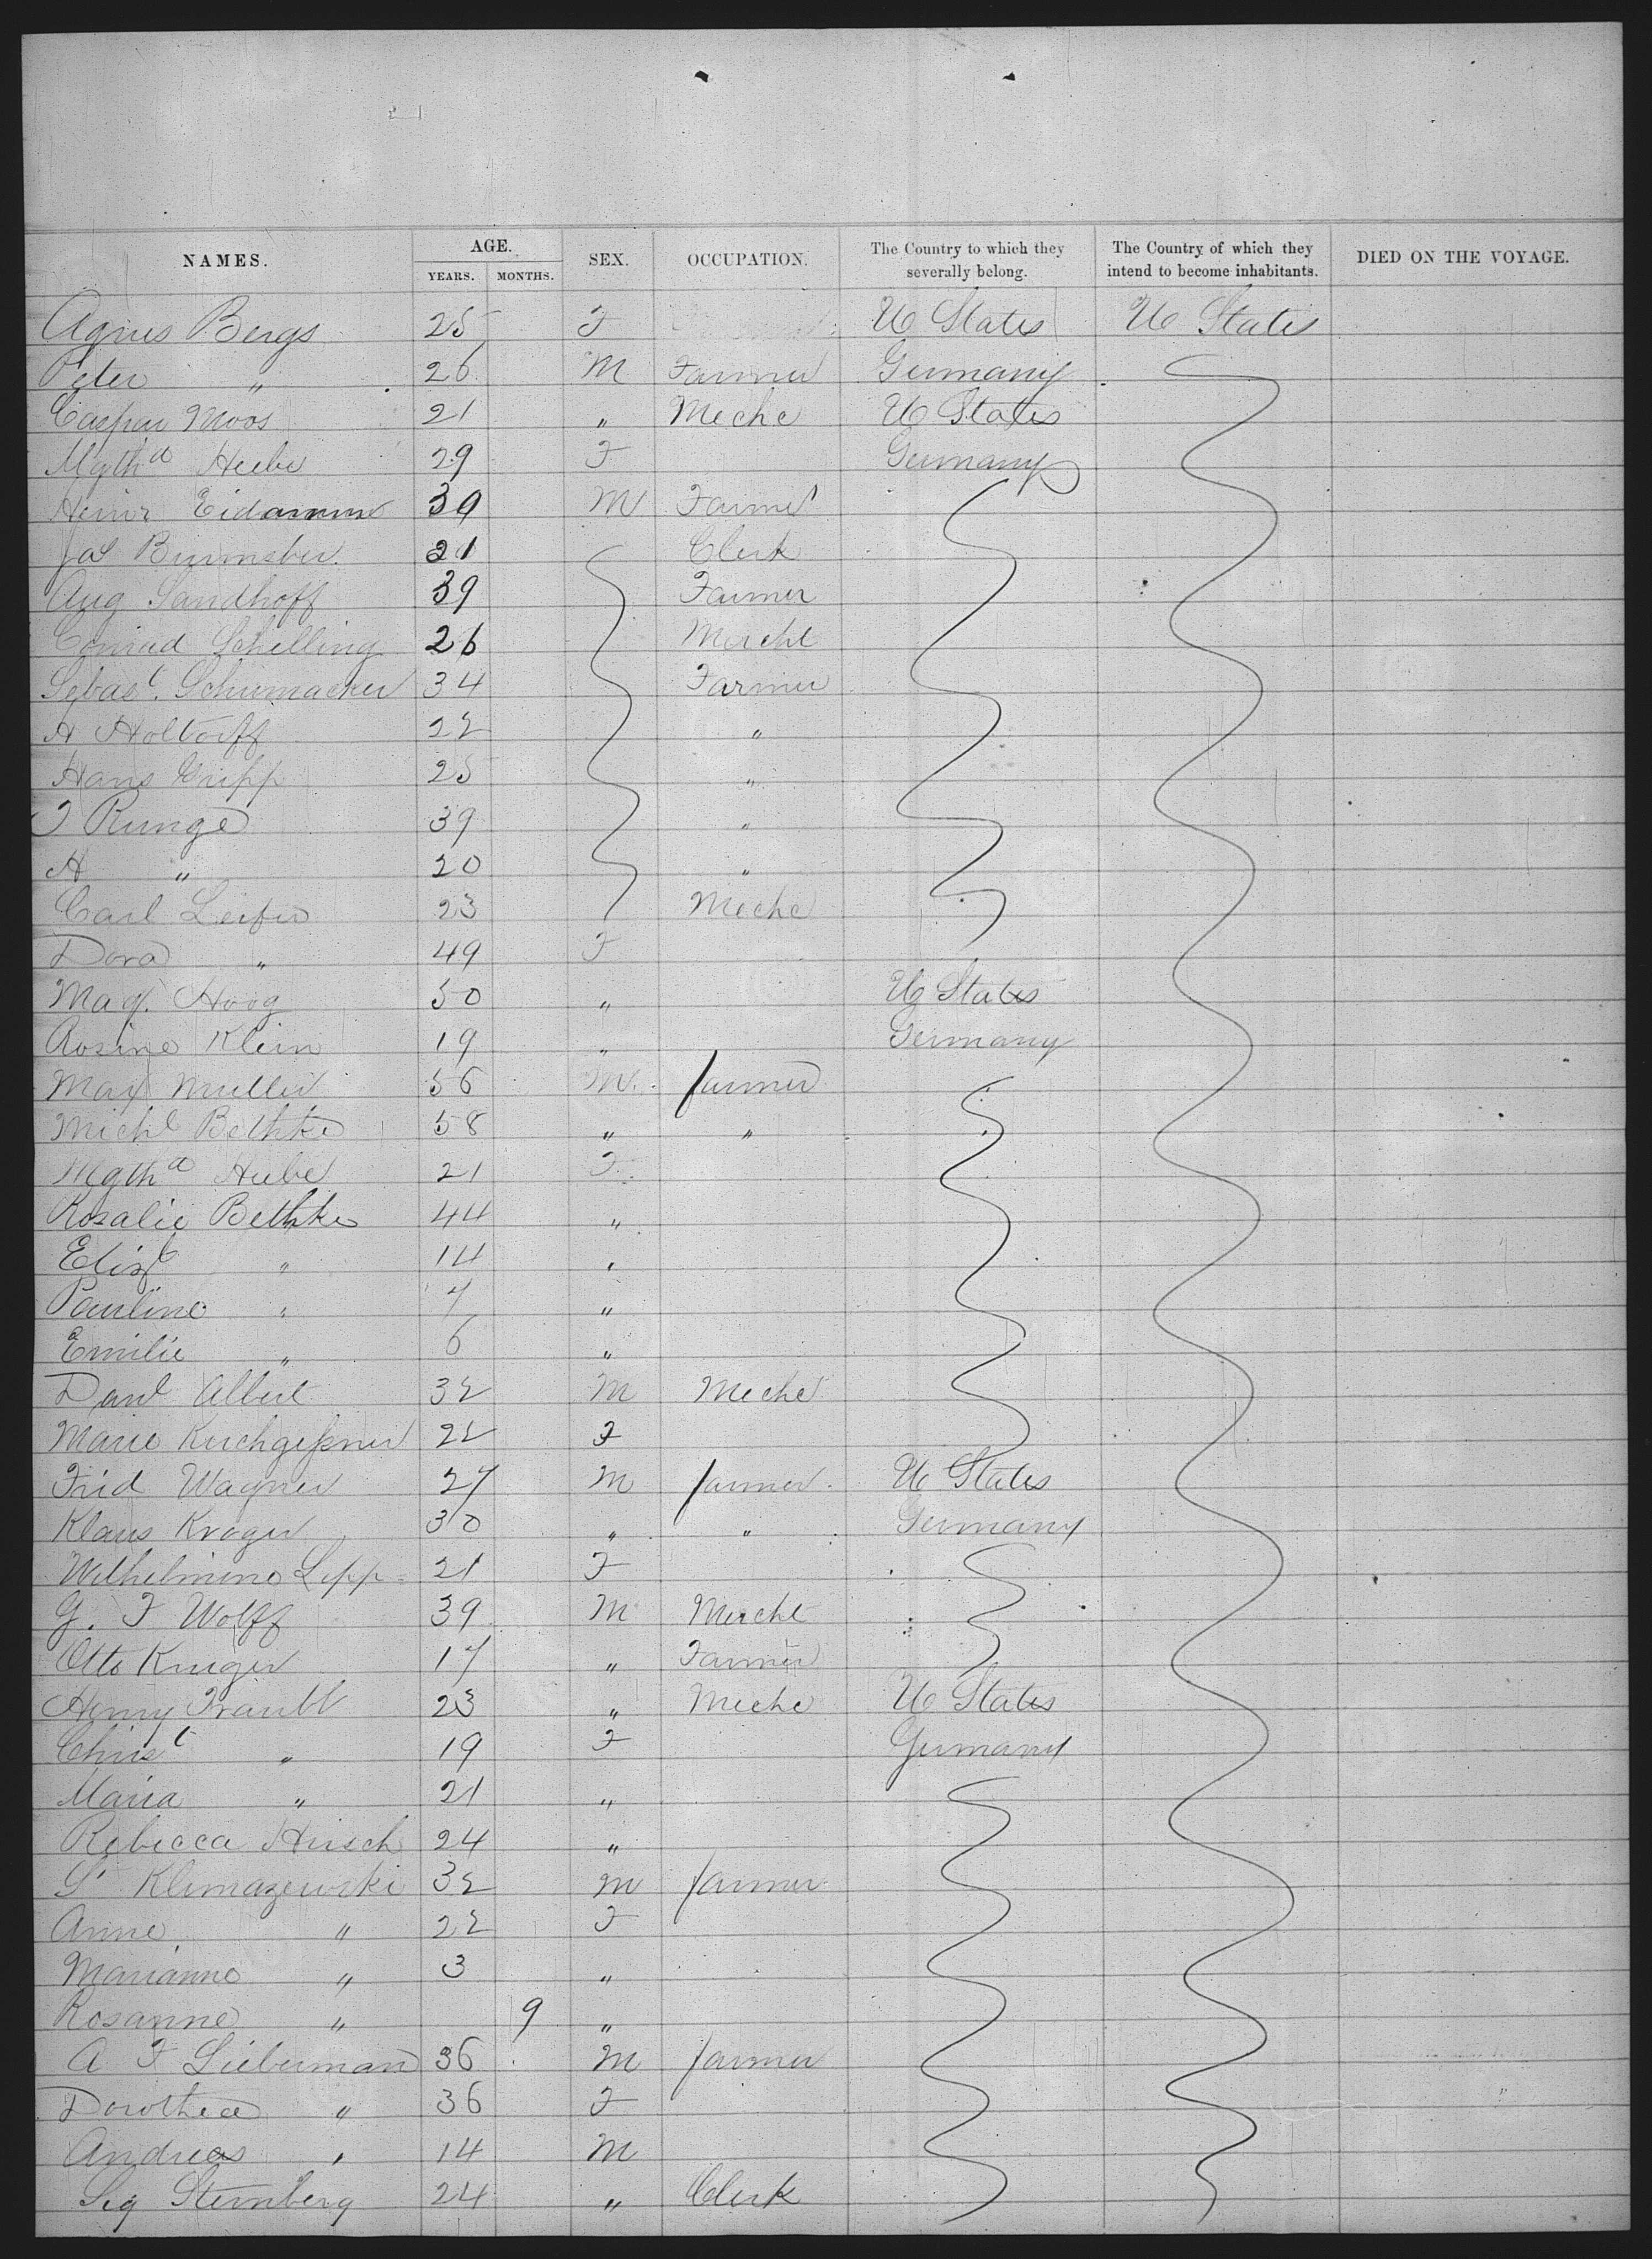 NAMES. AGE. YEARS. MONTHS. SEX. OCCUPATION. The Country to which they severally belong. The Country of which they intend to become inhabitants. DIED ON THE VOYAGE.
Agnes Bergs 25 F U States U States
Peter " 26 M Farmer Germany
Caspar Moos 21 " Mechc U States
Mgtha Huber 29 F Germany
Heinr 39 M Farmer
21 Clerk
Aug Sandhoff 39 Farmer
Conrad Schelling 26 Mercht
Sebast. Schumacher 34 Farmer
H Holtorff 22 "
Hans 25 "
J Runge 39 "
H " 20 "
Carl 23 Mechc
Dora " 49 F
Mag. Hoog 50 " U States
Rosine Klein 19 " Germany
Max Muller 56 M. farmer
Michl Bethke 58 " "
Mgtha Hube 21 F
Rosalie Bethke 44 "
Elisb " 14 "
Pauline " 7 "
Emilie " 6 "
Danl Albert 32 M Mechc
Marie Kirchgeßner 22 F
Fried Wagner 27 M farmer U States
Klaus Kroger 30 " " Germany
Wilhelmine Lepp 21 F
G. F Wolff 39 M Mercht
Otto Kruger 17 " Farmer
Henry Traubt 23 " Mechc U States
Christ " 19 F Germany
Maria " 21 "
Rebecca Hirsch 24 "
G Klimazewski 32 M farmer
Anne " 22 F
Marianne " 3 "
Rosanne " 9 "
A F Lieberman 36 M farmer
Dorothea " 36 F
Andreas " 14 M
Sig Sternberg 24 " Clerk